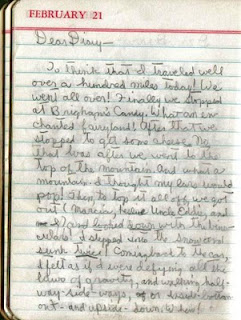 FEBRUARY 21
Dear Diary—
To think that I traveled well
over a hundred miles today! We
went all over! Finally we stopped
at Brigham's Candy. What an en-
chanted fairyland! After that we
stopped to get some cheese. No
that was after we went to the
top of the mountain. And what a
mountain. I thought my ears would
pop! Then to top it all off, we got
out (Marcia, Uncle Eddie, and
I) and looked down with the bino-
culars! I stepped into the snow and
sunk twice! Coming back to the car
I felt as if I were defying all the
laws of gravity, and walking half-
way-side-ways, or inside-
out- and upside-down. Whew!